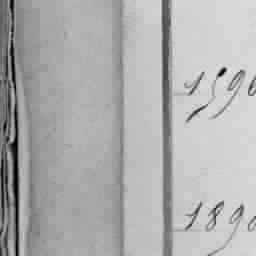 1596
1890